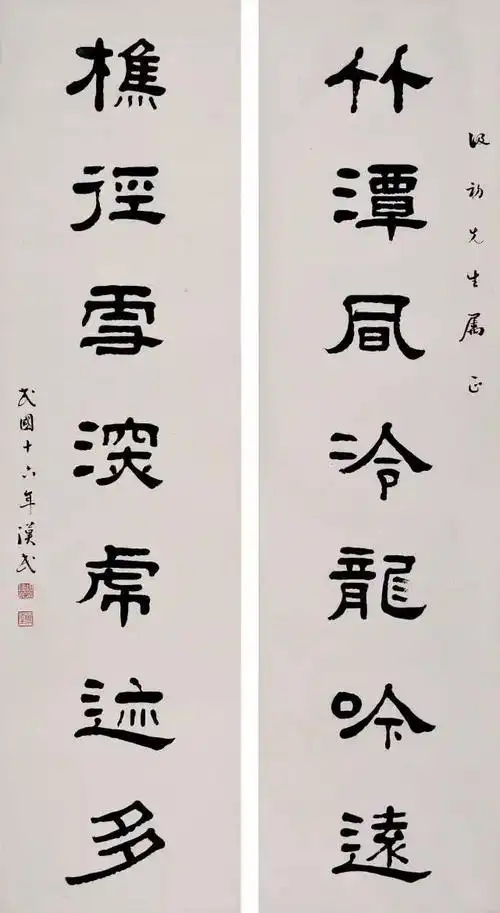 初先生属正
竹潭凬冷龍吟遠
樵徑雪深虎迹多
民國十六年漢民